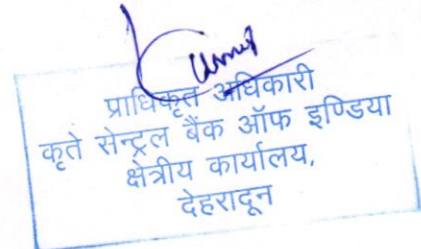 प्राधिकृत अधिकारी
कृते सेन्ट्रल बैंक ऑफ इण्डिया
क्षेत्रीय कार्यालय,
देहरादून